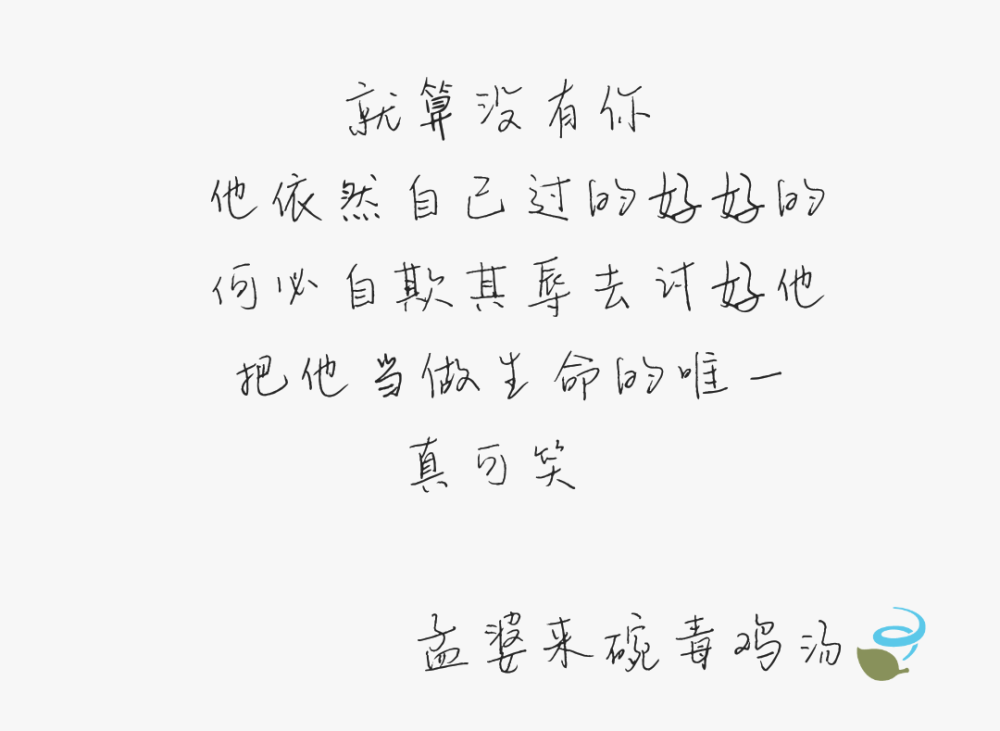 就算没有你
他依然自己过的好好的
何必自欺其辱去讨好他
把他当做生命的唯一
真可笑
孟婆来碗毒鸡汤